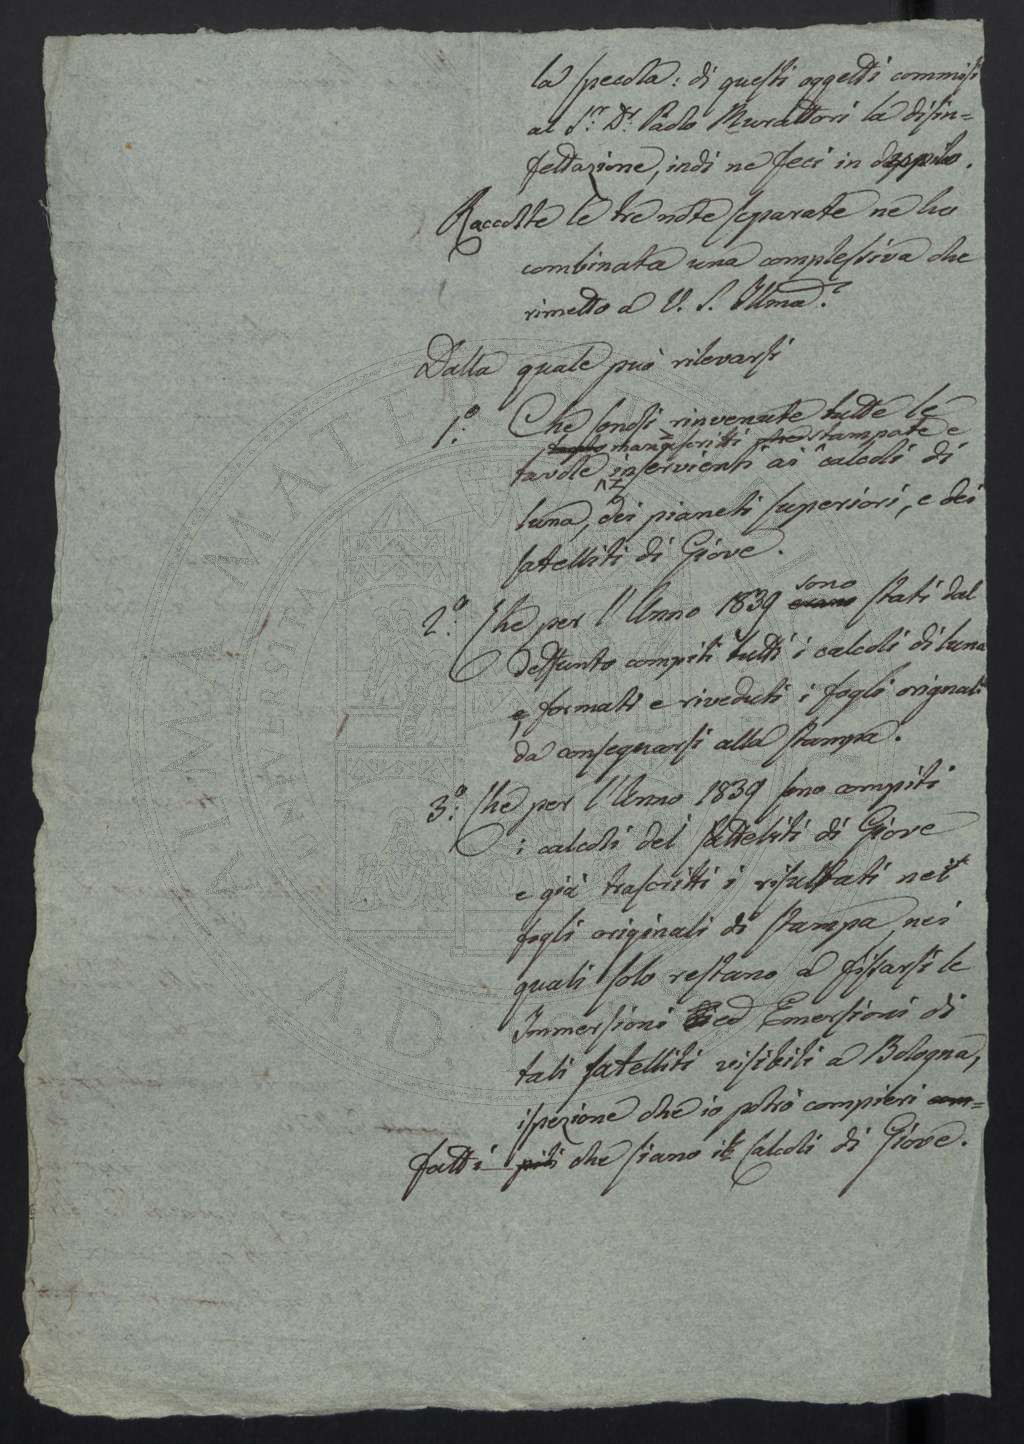 la specola: di questi oggetti commisi
al S.r D.r Paolo Murattori la disin=
fettazione, indi ne feci in
Raccolte le tre note separate ne ho
combinata una complessiva che
rimetto a V. S. Illma.
Dalla quale può rilevarsi
1.o Che sonosi rinvenute tutte le
manoscritti stampate e
tavole inservienti ai calcoli di
luna, dei pianeti superiori, e dei
satelliti di Giove.
sono
2.o Che per l'Anno 1839 erano stati dal
deffunto compiti tutti i calcoli di luna
e, formati e riveduti i fogli orignali
da consegnarsi alla stampa.
3.o Che per l'Anno 1839 sono compiti
i calcoli dei satteliti di Giove
e già trascritti i risultati nei
fogli originali di stampa, nei
quali solo restano a fissarsi le
Immersioni ed Emersioni di
tali satelliti visibili a Bologna,
ispezione che io potrò compieri com=
fatti piti che siano i Calcoli di Giove.
ALMA MATER STUDIORUM
UNIVERSITÀ
A.D.